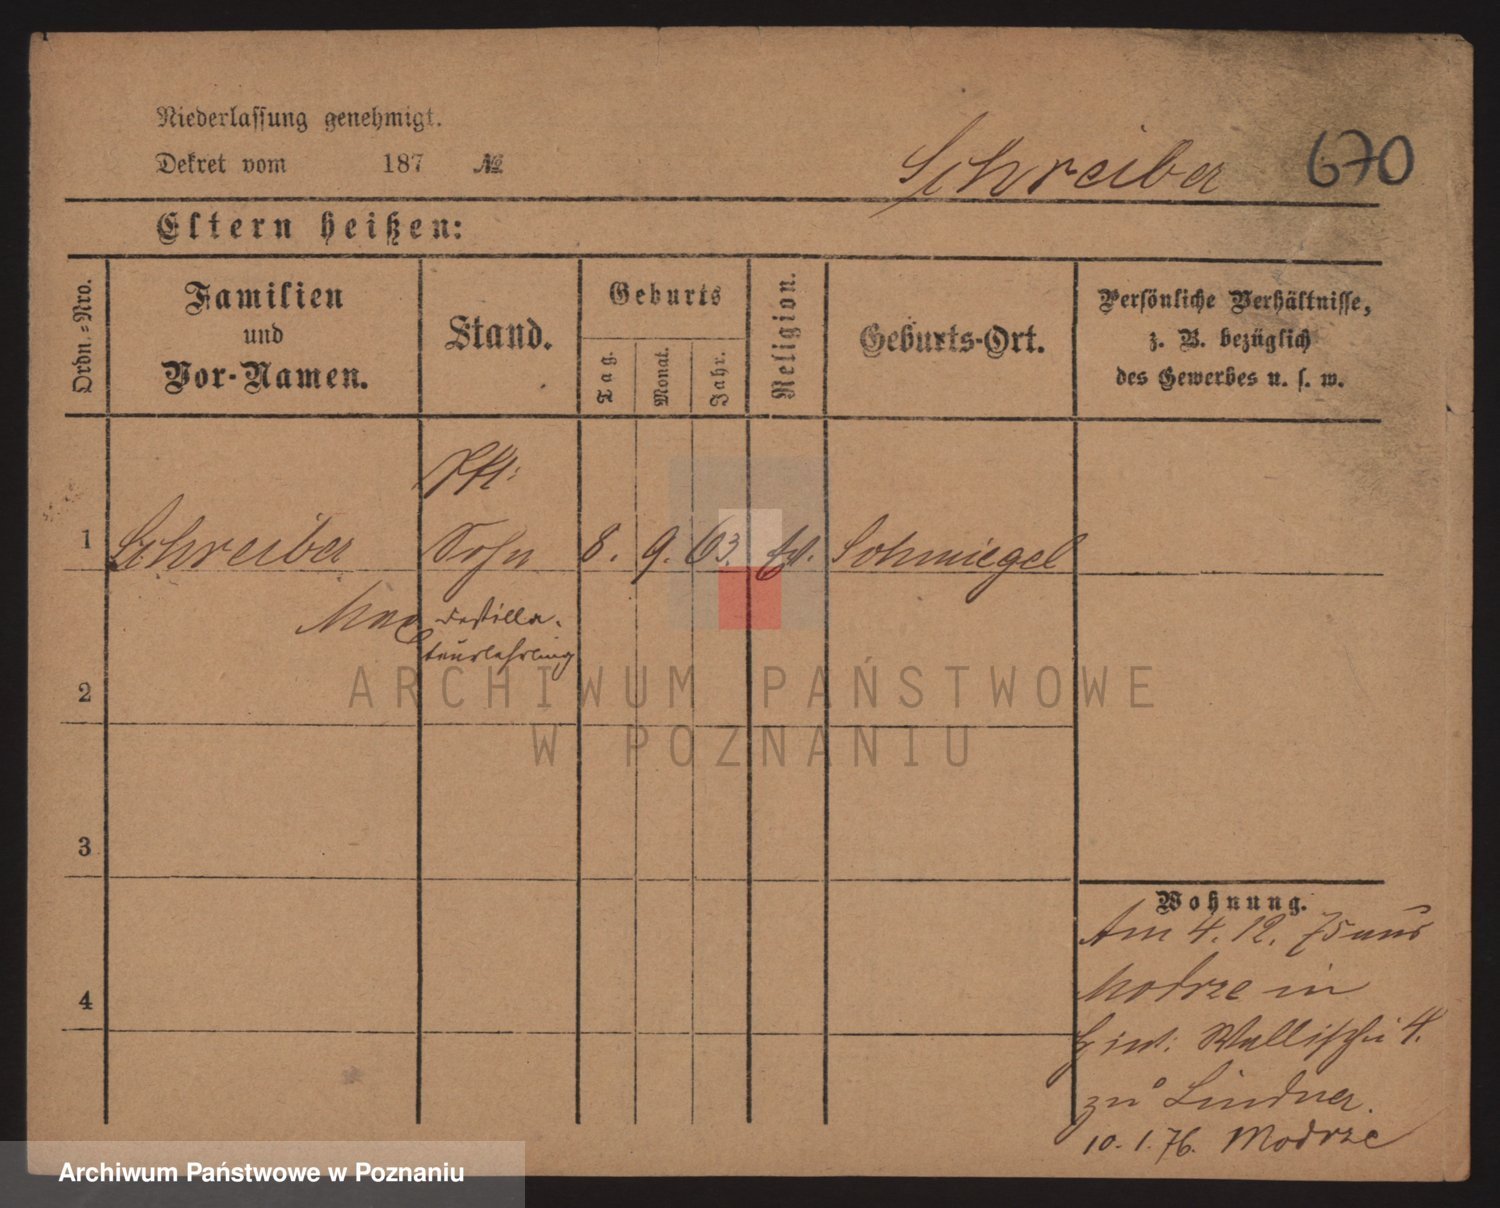 Niederlassung genehmigt.
Dekret vom 187 №
Schreiber 670
Eltern heißen:
Ordn.=Nro.
Familien
und
Vor-Namen.
Stand.
Geburts
Tag.
Monat.
Jahr.
Religion.
Geburts-Ort.
Persönliche Verhältnisse,
z. B. bezüglich
des Gewerbes u. s. w.
1 Schreiber Sohn 8. 9. 63. ev. Schmiegel
Max destilla-
teurlehrling
2
3
4
Wohnung.
Am 4. 12. 75 aus
Modrze in
Wallischei 4.
zu Lindner.
10. 1. 76. Modrze
ARCHIWUM PAŃSTWOWE
W POZNANIU
Archiwum Państwowe w Poznaniu